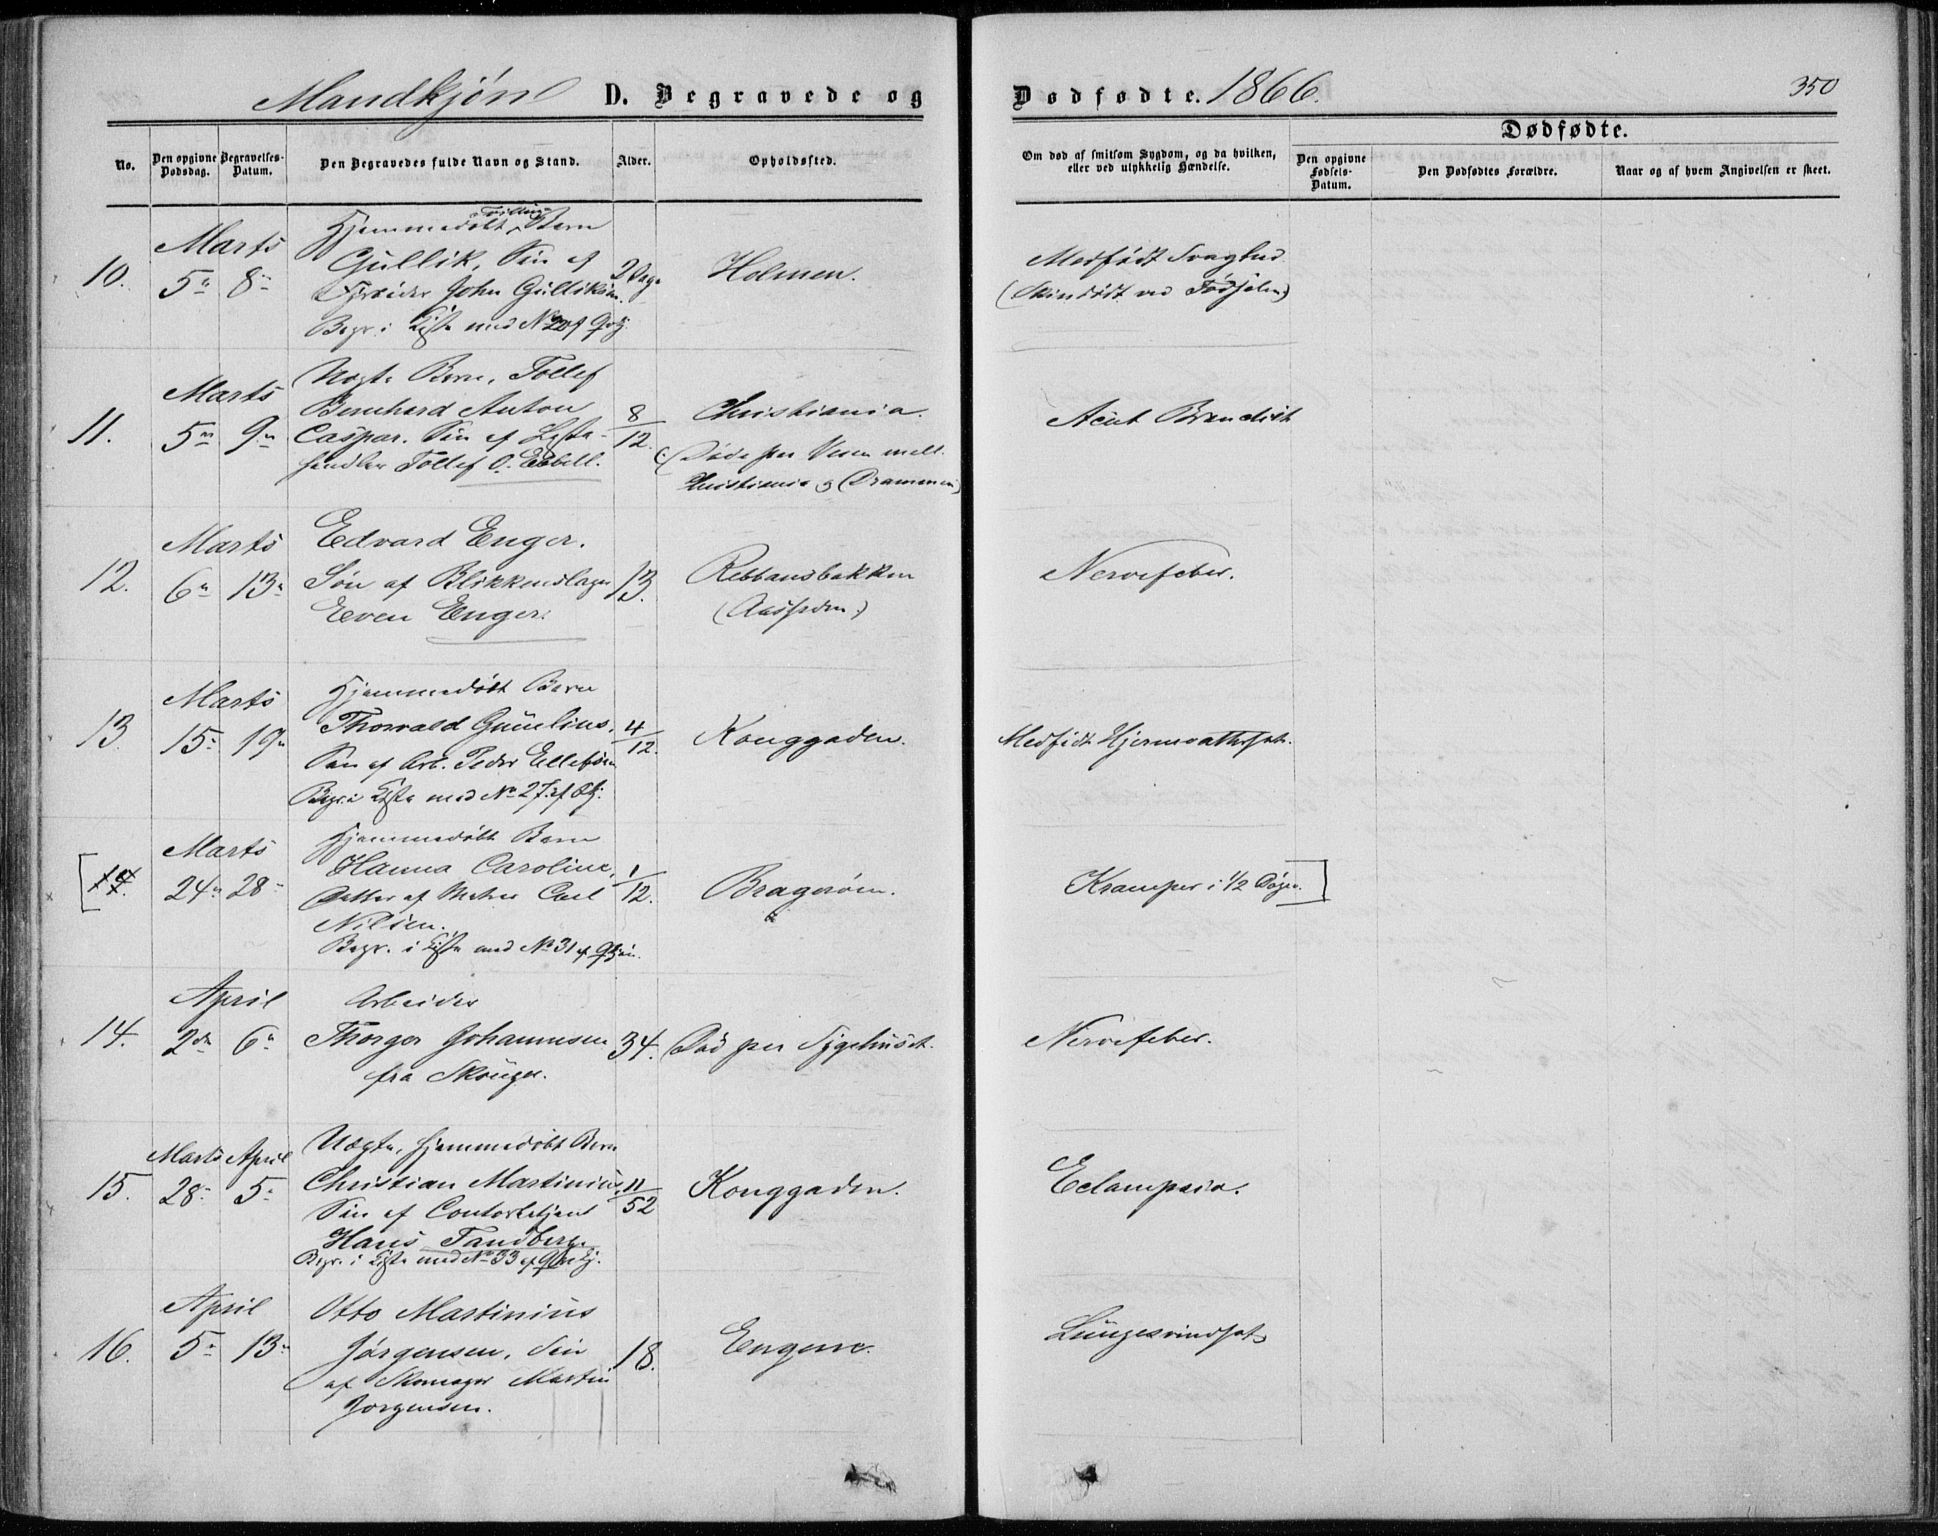 Mandkjøn D. Begravede og Dødfødte. 1866. 350
Dødfødte.
No. Den opgivne Dødsdag. Begravelses-Datum. Den Begravedes fulde Navn og Stand. Alder. Opholdssted. Om død af smitsom Sygdom, og da hvilken, eller ved ulykkelig Hændelse. Den opgivne Fødsels-Datum. Den Dødfødtes Forældre. Naar og af hvem Angivelsen er skeet.
Marts Hjemmedøbt Tvilling Barn
10. 5 8 Gullik, Søn af 2 Dage Holmen. Medfødt Svaghed
Arbeider John Gulliksen. (Skindødt ved Fødselen)
Begr. i Kiste med No 20 af Qvkj.
Marts Uægte Barn, Tollef
11. 5 9 Bernhard Anton 8/12. Christiania. Acut Bronchit
Caspar. Søn af
handler Tollef O. Ebbell. (Døde paa Veien mell. Christiania og Drammen)
Marts Edvard Enger.
12. 6 13 Søn af Blikkenslager 13. Rebbansbakken Nervefeber.
Even Enger. (Aassiden)
Marts Hjemmedøbt Barn
13. 15 19 Thorvald Gunelius, 4/12. Konggaden. Medfødt
Søn af Arb. Peder Ellefsen
Begr. i Kiste med No 27 af Qkj.
Marts Hjemmedøbt Barn
[14. 24 28 Hanna Caroline, 1/12. Bragerøen. Kramper i 1/2 Døgn.]
Datter af Carl
Nilsen.
Begr. i Kiste med No 31 af Qkjøn.
April Arbeider
14. 2den 6 Thorger Johannesen 34. Død paa Sygehuset. Nervefeber.
fra Skouger.
Marts April Uægte, hjemmedøbt Barn
15. 28 5 Christian Martinius, 11/52 Konggaden. Eclampsia.
Søn af Contorbetjent
Hans Tandberg.
Begr. i Kiste med No 33 af Qvkj.
April Otto Martinius
16. 5 13 Jørgensen, Søn 18. Engene. Lungesvindsot
af Skomager Martin
Jørgensen.